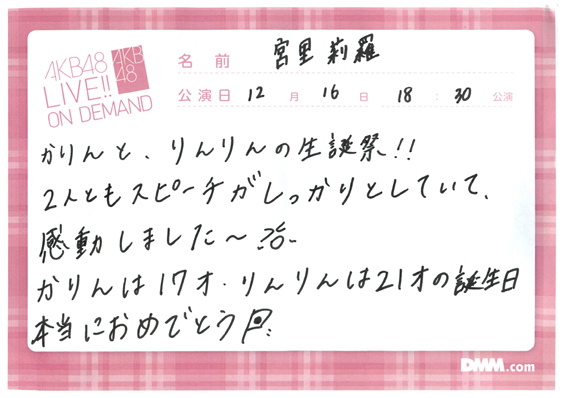 AKB48
LIVE!!
ON DEMAND
AKB
48
名前 宮里莉羅
公演日 12 月 16 日 18 : 30 公演
かりんと、りんりんの生誕祭!!
2人ともスピーチがしっかりとしていて、
感動しました〜
かりんは17才・りんりんは21才の誕生日
本当におめでとう
DMM.com